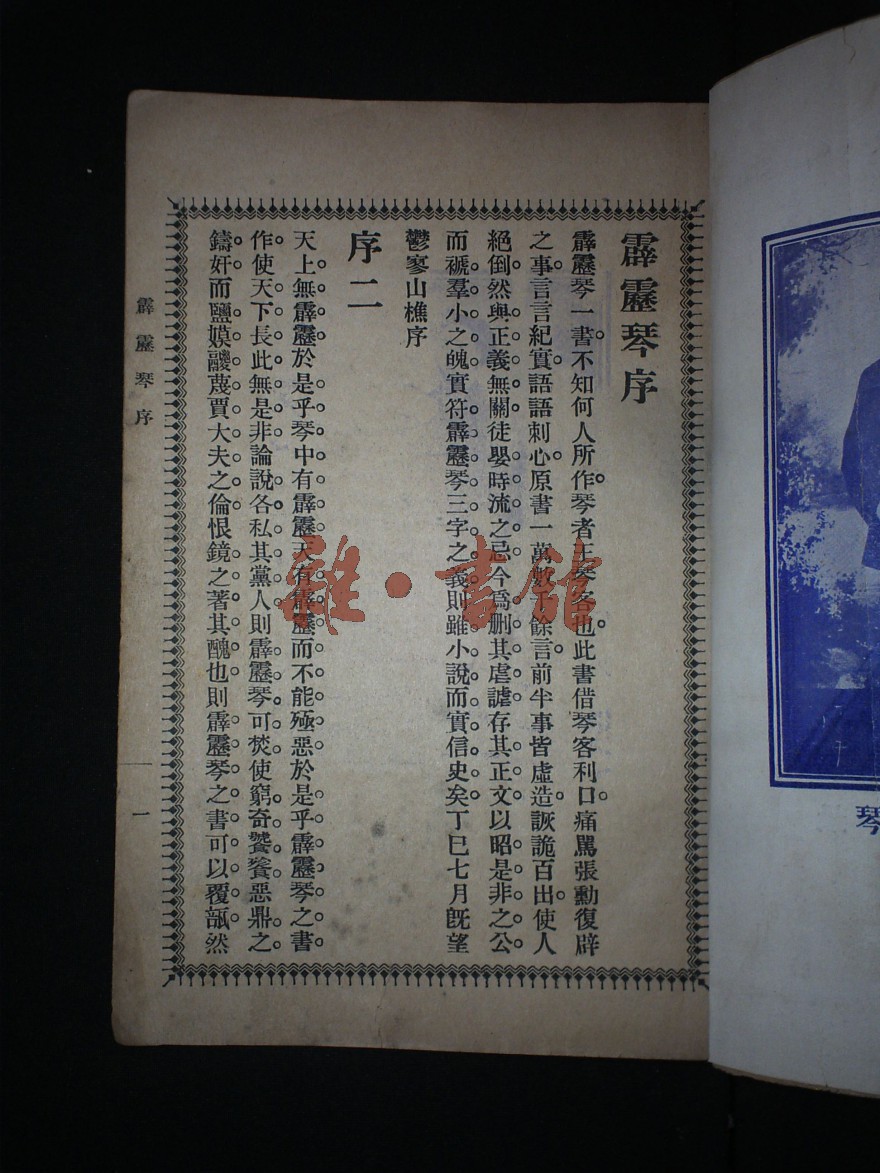 霹靂琴序
霹靂琴一書。不知何人所作。琴者王琴客也。此書借琴客利口。痛罵張勳復辟
之事。言言紀實。語語刺心。原書一萬數千餘言。前半事皆虛造。詼詭百出。使人
絕倒。然與正義無關。徒嬰時流之忌。今爲删其虐謔。存其正文。以昭是非之公。
而褫羣小之魄。實符霹靂琴三字之義。則雖小說而實信史矣。丁巳七月既望
鬱寥山樵序
序二
天上無霹靂。於是乎琴中有霹靂。天有霹靂而不能殛惡。於是乎霹靂琴之書
作。使天下長此無是非。論說各私其黨人。則霹靂琴可焚。使窮奇饕餮惡鼎之
鑄奸。而鹽嫫鬷蔑賈大夫之倫。恨鏡之著其醜也。則霹靂琴之書。可以覆瓿。然
霹靂琴序
一
雜·書館
琴